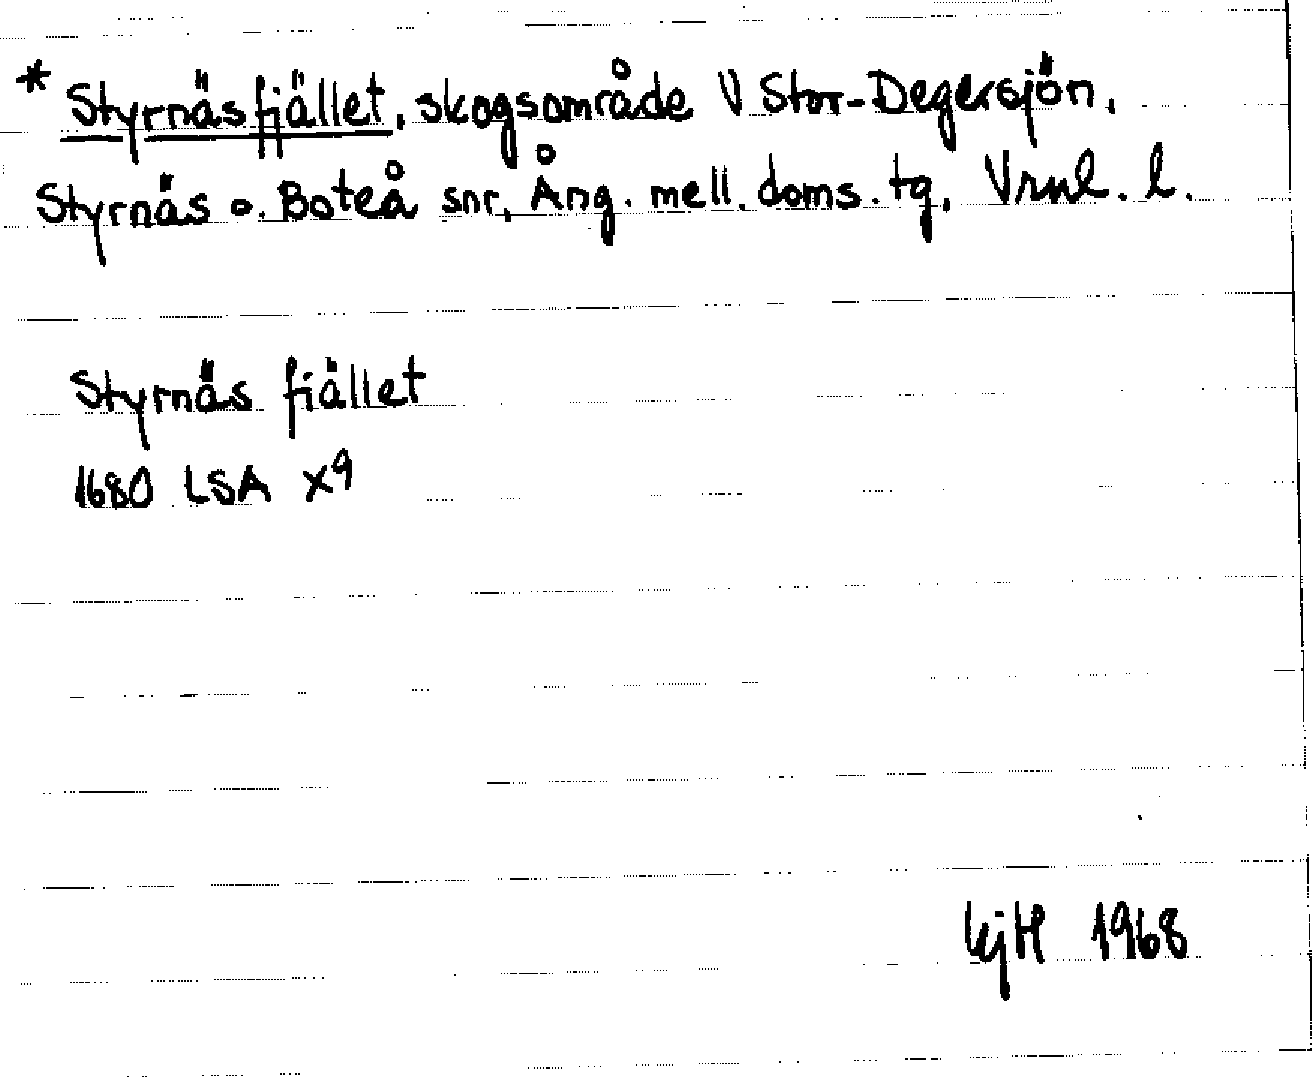 * Styrnäsfjället, skogsområde V Stor-Degersjön,
Styrnäs o. Boteå snr, Ång. mell. doms. tg, Vrnl. l.
Styrnäs fiället
1680 LSA X9
KjH 1968